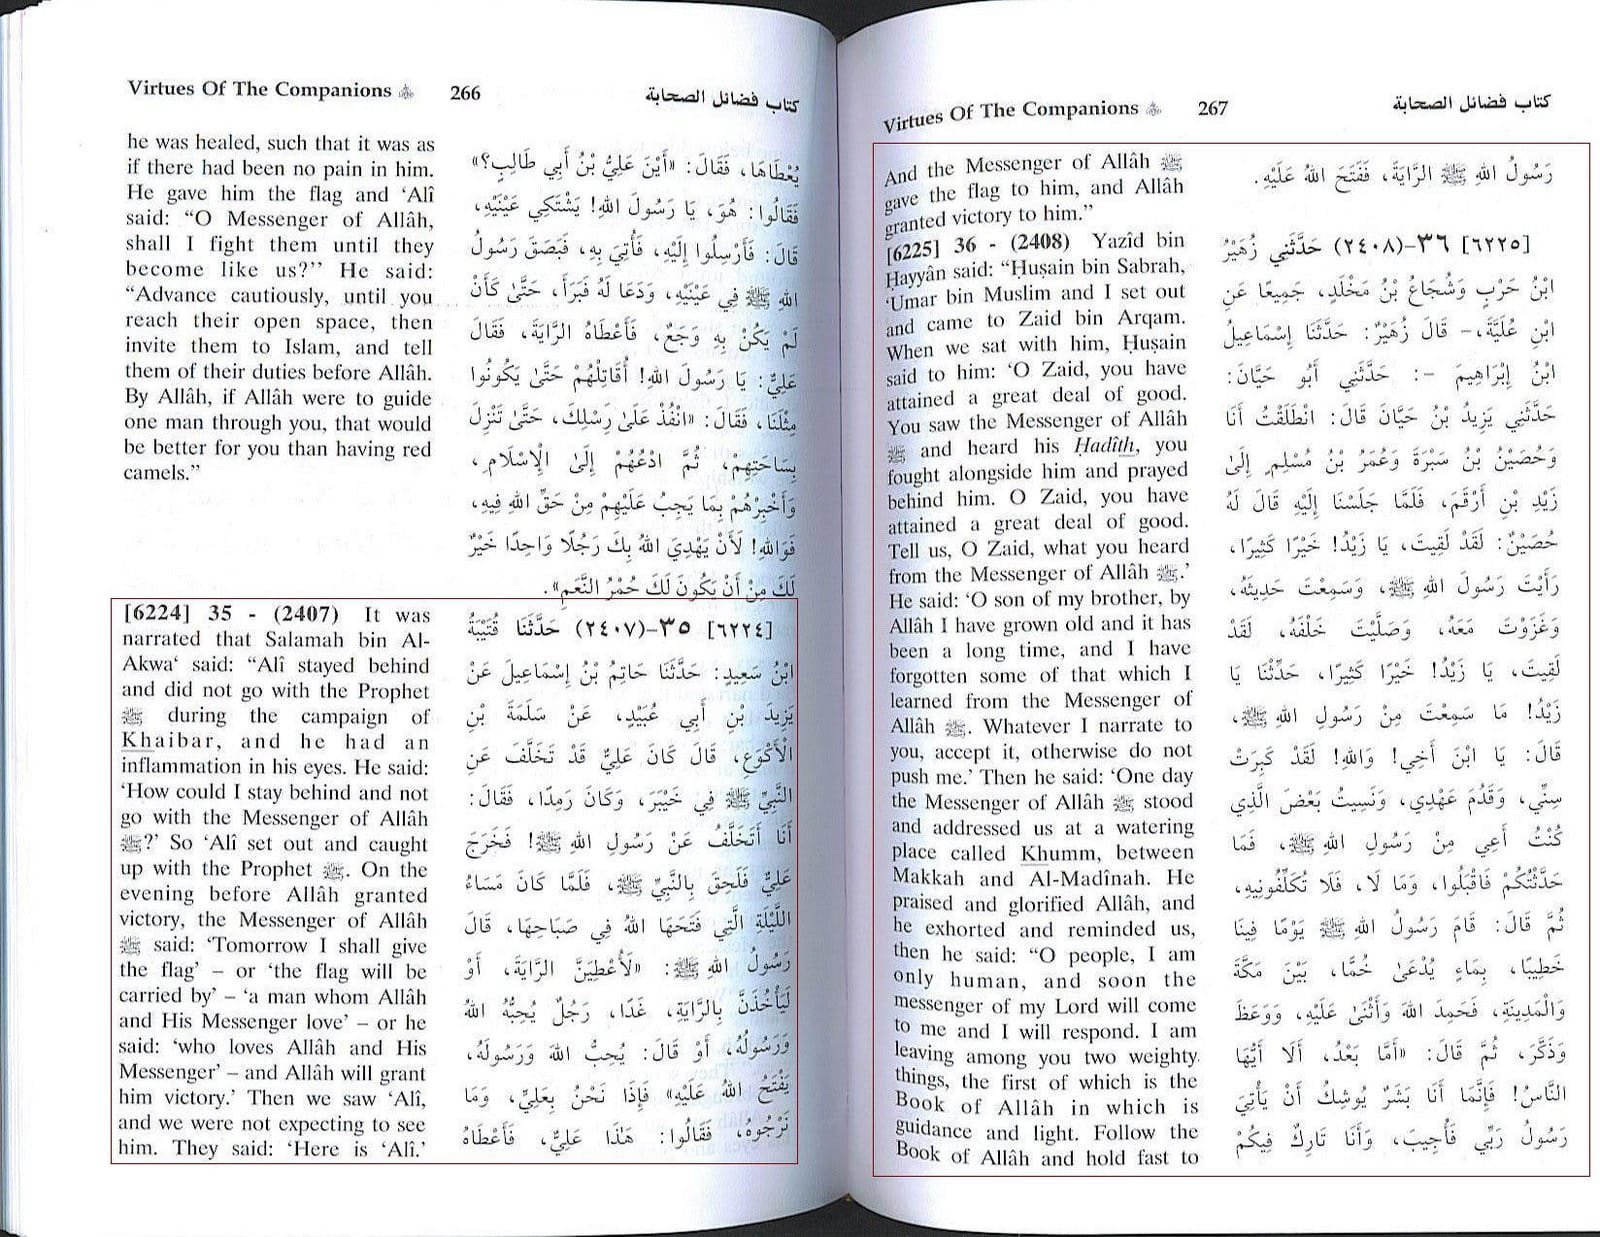 Virtues Of The Companions 266 كتاب فضائل الصحابة
he was healed, such that it was as
if there had been no pain in him.
He gave him the flag and ‘Alî
said: “O Messenger of Allâh,
shall I fight them until they
become like us?’’ He said:
“Advance cautiously, until you
reach their open space, then
invite them to Islam, and tell
them of their duties before Allâh.
By Allâh, if Allâh were to guide
one man through you, that would
be better for you than having red
camels.”
يُعْطَاهَا، فَقَالَ: «أَيْنَ عَلِيُّ بْنُ أَبِي طَالِبٍ؟»
فَقَالُوا: هُوَ، يَا رَسُولَ اللهِ! يَشْتَكِي عَيْنَيْهِ،
قَالَ: فَأَرْسِلُوا إِلَيْهِ، فَأُتِيَ بِهِ، فَبَصَقَ رَسُولُ
اللهِ ﷺ فِي عَيْنَيْهِ، وَدَعَا لَهُ فَبَرَأَ، حَتَّىٰ كَأَنْ
لَمْ يَكُنْ بِهِ وَجَعٌ، فَأَعْطَاهُ الرَّايَةَ، فَقَالَ
عَلِيٌّ: يَا رَسُولَ اللهِ! أُقَاتِلُهُمْ حَتَّىٰ يَكُونُوا
مِثْلَنَا، فَقَالَ: «انْفُذْ عَلَىٰ رِسْلِكَ، حَتَّىٰ تَنْزِلَ
بِسَاحَتِهِمْ، ثُمَّ ادْعُهُمْ إِلَىٰ الْإِسْلَامِ،
وَأَخْبِرْهُمْ بِمَا يَجِبُ عَلَيْهِمْ مِنْ حَقِّ اللهِ فِيهِ،
فَوَاللهِ! لَأَنْ يَهْدِيَ اللهُ بِكَ رَجُلًا وَاحِدًا خَيْرٌ
لَكَ مِنْ أَنْ يَكُونَ لَكَ حُمْرُ النَّعَمِ».
[6224] 35 - (2407) It was
narrated that Salamah bin Al-
Akwa‘ said: “Alî stayed behind
and did not go with the Prophet
ﷺ during the campaign of
Khaibar, and he had an
inflammation in his eyes. He said:
‘How could I stay behind and not
go with the Messenger of Allâh
ﷺ?’ So ‘Alî set out and caught
up with the Prophet ﷺ. On the
evening before Allâh granted
victory, the Messenger of Allâh
ﷺ said: ‘Tomorrow I shall give
the flag’ – or ‘the flag will be
carried by’ – ‘a man whom Allâh
and His Messenger love’ – or he
said: ‘who loves Allâh and His
Messenger’ – and Allâh will grant
him victory.’ Then we saw ‘Alî,
and we were not expecting to see
him. They said: ‘Here is ‘Alî.’
[٦٢٢٤] ٣٥-(٢٤٠٧) حَدَّثَنَا قُتَيْبَةُ
ابْنُ سَعِيدٍ: حَدَّثَنَا حَاتِمُ بْنُ إِسْمَاعِيلَ عَنْ
يَزِيدَ بْنِ أَبِي عُبَيْدٍ، عَنْ سَلَمَةَ بْنِ
الْأَكْوَعِ، قَالَ كَانَ عَلِيٌّ قَدْ تَخَلَّفَ عَنِ
النَّبِيِّ ﷺ فِي خَيْبَرَ، وَكَانَ رَمِدًا، فَقَالَ:
أَنَا أَتَخَلَّفُ عَنْ رَسُولِ اللهِ ﷺ! فَخَرَجَ
عَلِيٌّ فَلَحِقَ بِالنَّبِيِّ ﷺ، فَلَمَّا كَانَ مَسَاءُ
اللَّيْلَةِ الَّتِي فَتَحَهَا اللهُ فِي صَبَاحِهَا، قَالَ
رَسُولُ اللهِ ﷺ: «لَأُعْطِيَنَّ الرَّايَةَ، أَوْ
لَيَأْخُذَنَّ بِالرَّايَةِ، غَدًا، رَجُلٌ يُحِبُّهُ اللهُ
وَرَسُولُهُ، أَوْ قَالَ: يُحِبُّ اللهَ وَرَسُولَهُ،
يَفْتَحُ اللهُ عَلَيْهِ» فَإِذَا نَحْنُ بِعَلِيٍّ، وَمَا
نَرْجُوهُ، فَقَالُوا: هَٰذَا عَلِيٌّ، فَأَعْطَاهُ
Virtues Of The Companions 267 كتاب فضائل الصحابة
And the Messenger of Allâh ﷺ
gave the flag to him, and Allâh
granted victory to him.”
[6225] 36 - (2408) Yazîd bin
Ḥayyân said: “Ḥuṣain bin Sabrah,
‘Umar bin Muslim and I set out
and came to Zaid bin Arqam.
When we sat with him, Ḥuṣain
said to him: ‘O Zaid, you have
attained a great deal of good.
You saw the Messenger of Allâh
ﷺ and heard his Ḥadîth, you
fought alongside him and prayed
behind him. O Zaid, you have
attained a great deal of good.
Tell us, O Zaid, what you heard
from the Messenger of Allâh ﷺ.’
He said: ‘O son of my brother, by
Allâh I have grown old and it has
been a long time, and I have
forgotten some of that which I
learned from the Messenger of
Allâh ﷺ. Whatever I narrate to
you, accept it, otherwise do not
push me.’ Then he said: ‘One day
the Messenger of Allâh ﷺ stood
and addressed us at a watering
place called Khumm, between
Makkah and Al-Madînah. He
praised and glorified Allâh, and
he exhorted and reminded us,
then he said: “O people, I am
only human, and soon the
messenger of my Lord will come
to me and I will respond. I am
leaving among you two weighty
things, the first of which is the
Book of Allâh in which is
guidance and light. Follow the
Book of Allâh and hold fast to
رَسُولُ اللهِ ﷺ الرَّايَةَ، فَفَتَحَ اللهُ عَلَيْهِ.
[٦٢٢٥] ٣٦-(٢٤٠٨) حَدَّثَنِي زُهَيْرُ
ابْنُ حَرْبٍ وَشُجَاعُ بْنُ مَخْلَدٍ، جَمِيعًا عَنِ
ابْنِ عُلَيَّةَ،- قَالَ زُهَيْرٌ: حَدَّثَنَا إِسْمَاعِيلُ
ابْنُ إِبْرَاهِيمَ -: حَدَّثَنِي أَبُو حَيَّانَ:
حَدَّثَنِي يَزِيدُ بْنُ حَيَّانَ قَالَ: انْطَلَقْتُ أَنَا
وَحُصَيْنُ بْنُ سَبْرَةَ وَعُمَرُ بْنُ مُسْلِمٍ إِلَىٰ
زَيْدِ بْنِ أَرْقَمَ، فَلَمَّا جَلَسْنَا إِلَيْهِ قَالَ لَهُ
حُصَيْنٌ: لَقَدْ لَقِيتَ، يَا زَيْدُ! خَيْرًا كَثِيرًا،
رَأَيْتَ رَسُولَ اللهِ ﷺ، وَسَمِعْتَ حَدِيثَهُ،
وَغَزَوْتَ مَعَهُ، وَصَلَّيْتَ خَلْفَهُ، لَقَدْ
لَقِيتَ، يَا زَيْدُ! خَيْرًا كَثِيرًا، حَدِّثْنَا يَا
زَيْدُ! مَا سَمِعْتَ مِنْ رَسُولِ اللهِ ﷺ،
قَالَ: يَا ابْنَ أَخِي! وَاللهِ! لَقَدْ كَبِرَتْ
سِنِّي، وَقَدُمَ عَهْدِي، وَنَسِيتُ بَعْضَ الَّذِي
كُنْتُ أَعِي مِنْ رَسُولِ اللهِ ﷺ، فَمَا
حَدَّثْتُكُمْ فَاقْبَلُوا، وَمَا لَا، فَلَا تُكَلِّفُونِيهِ،
ثُمَّ قَالَ: قَامَ رَسُولُ اللهِ ﷺ يَوْمًا فِينَا
خَطِيبًا، بِمَاءٍ يُدْعَىٰ خُمًّا، بَيْنَ مَكَّةَ
وَالْمَدِينَةِ، فَحَمِدَ اللهَ وَأَثْنَىٰ عَلَيْهِ، وَوَعَظَ
وَذَكَّرَ، ثُمَّ قَالَ: «أَمَّا بَعْدُ، أَلَا أَيُّهَا
النَّاسُ! فَإِنَّمَا أَنَا بَشَرٌ يُوشِكُ أَنْ يَأْتِيَ
رَسُولُ رَبِّي فَأُجِيبَ، وَأَنَا تَارِكٌ فِيكُمْ